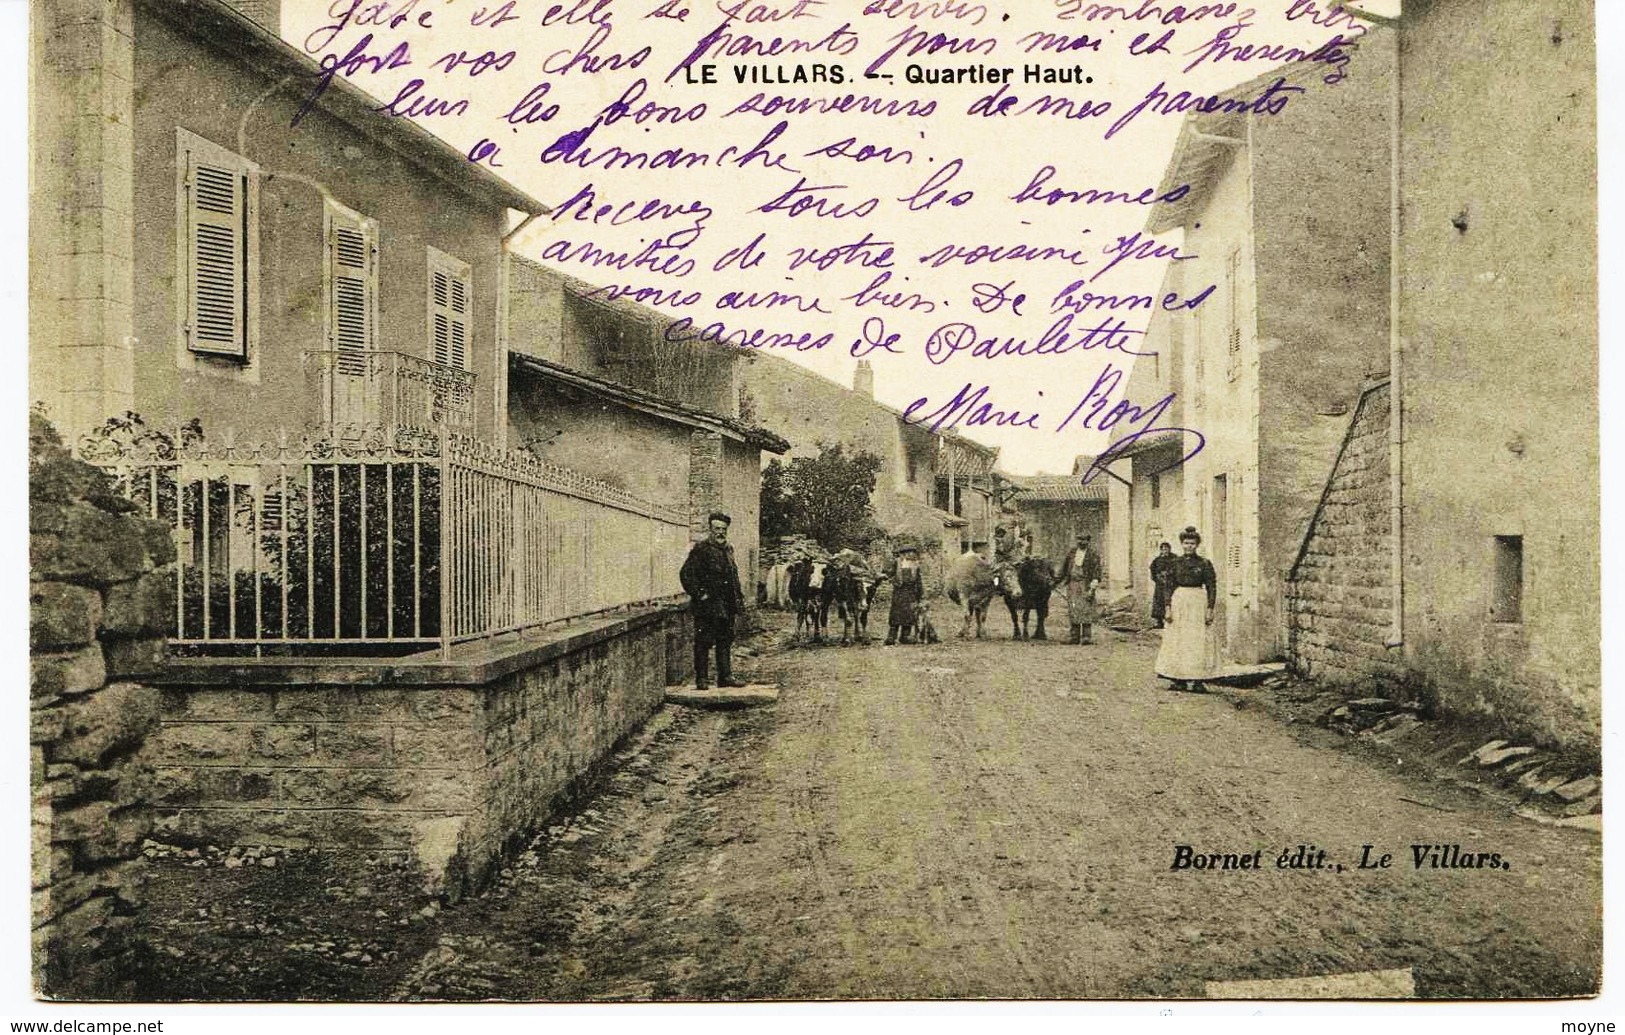 gâté et elle se fait servir. Embrassez bien
fort vos chers parents pour moi et presentez
LE VILLARS. -- Quartier Haut.
leur les bons souvenirs de mes parents
a dimanche soir.
Recevez tous les bonnes
amitiés de votre voisine qui
vous aime bien. De bonnes
caresses de Paulette
Marie Roy
Bornet édit., Le Villars.
www.delcampe.net
moyne